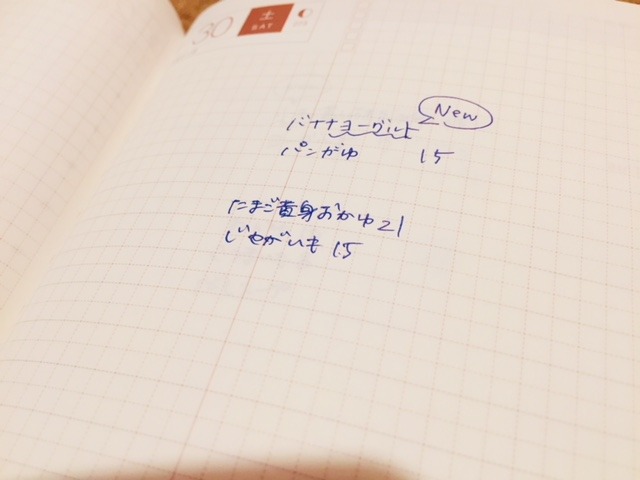 30 土
SAT
New
バナナヨーグルト
パンがゆ 15
たまご黄身おかゆ21
じゃがいも 15